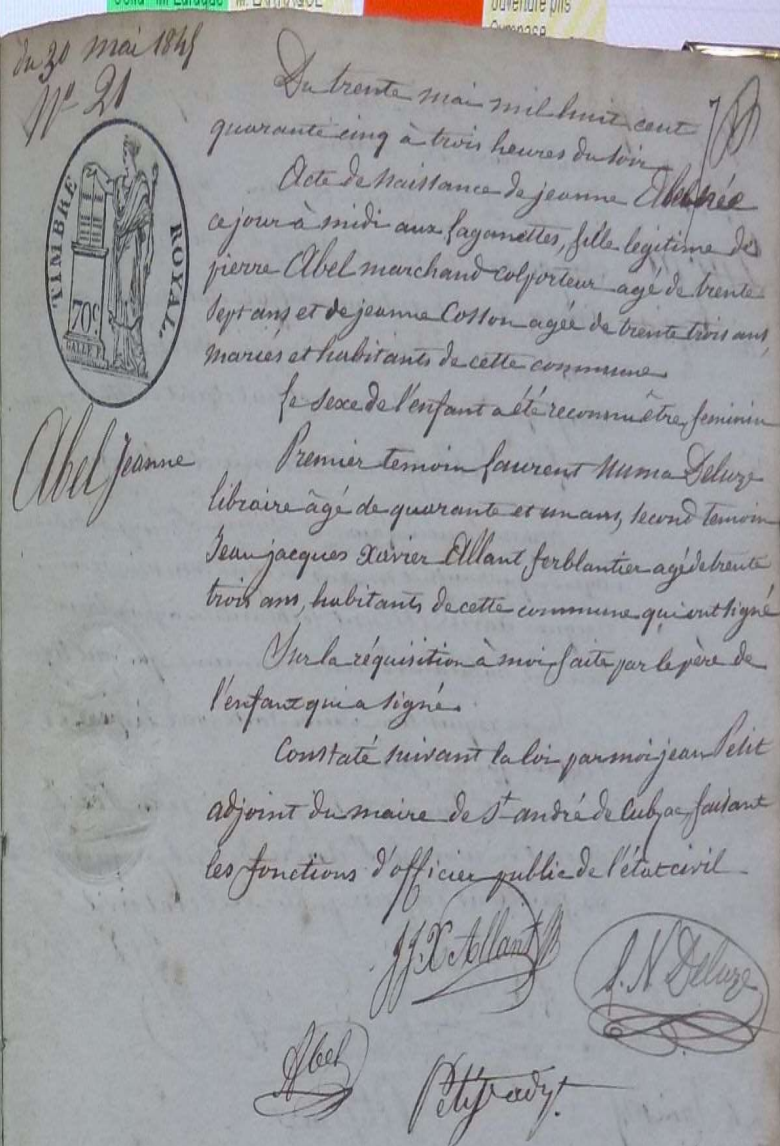 du 30 mai 1845
N° 21
TIMBRE ROYAL.
70c
GALLE F.
Abel Jeanne
Du trente mai mil huit cent
quarante cinq à trois heures du soir
Acte de naissance de jeanne Abel née
ce jour à midi aux fagonettes, fille legitime de
pierre Abel marchand colporteur agé de trente
Sept ans et de jeanne Cosson agée de trente trois ans
mariés et habitants de cette commune
Le Sexe de l'enfant a été reconnu être feminin
Premier temoin Laurent Numa Deluze
libraire âgé de quarante et un ans, second temoin
Jean jacques Xavier Allant, ferblantier agé de trente
trois ans, habitants de cette commune qui ont signé
Sur la réquisition à moi faite par le père de
l'enfant qui a signé.
Constaté suivant la loi par moi jean Petit
adjoint du maire de St andré de Cubzac, faisant
les fonctions d'officier public de l'état civil
JJX Allant
L. N Deluze
Abel
Petit adjt.